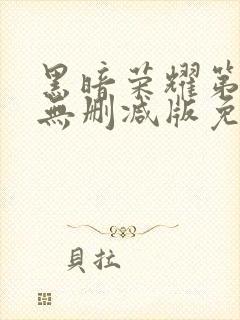 黑暗荣耀第
無删减版免
貝拉